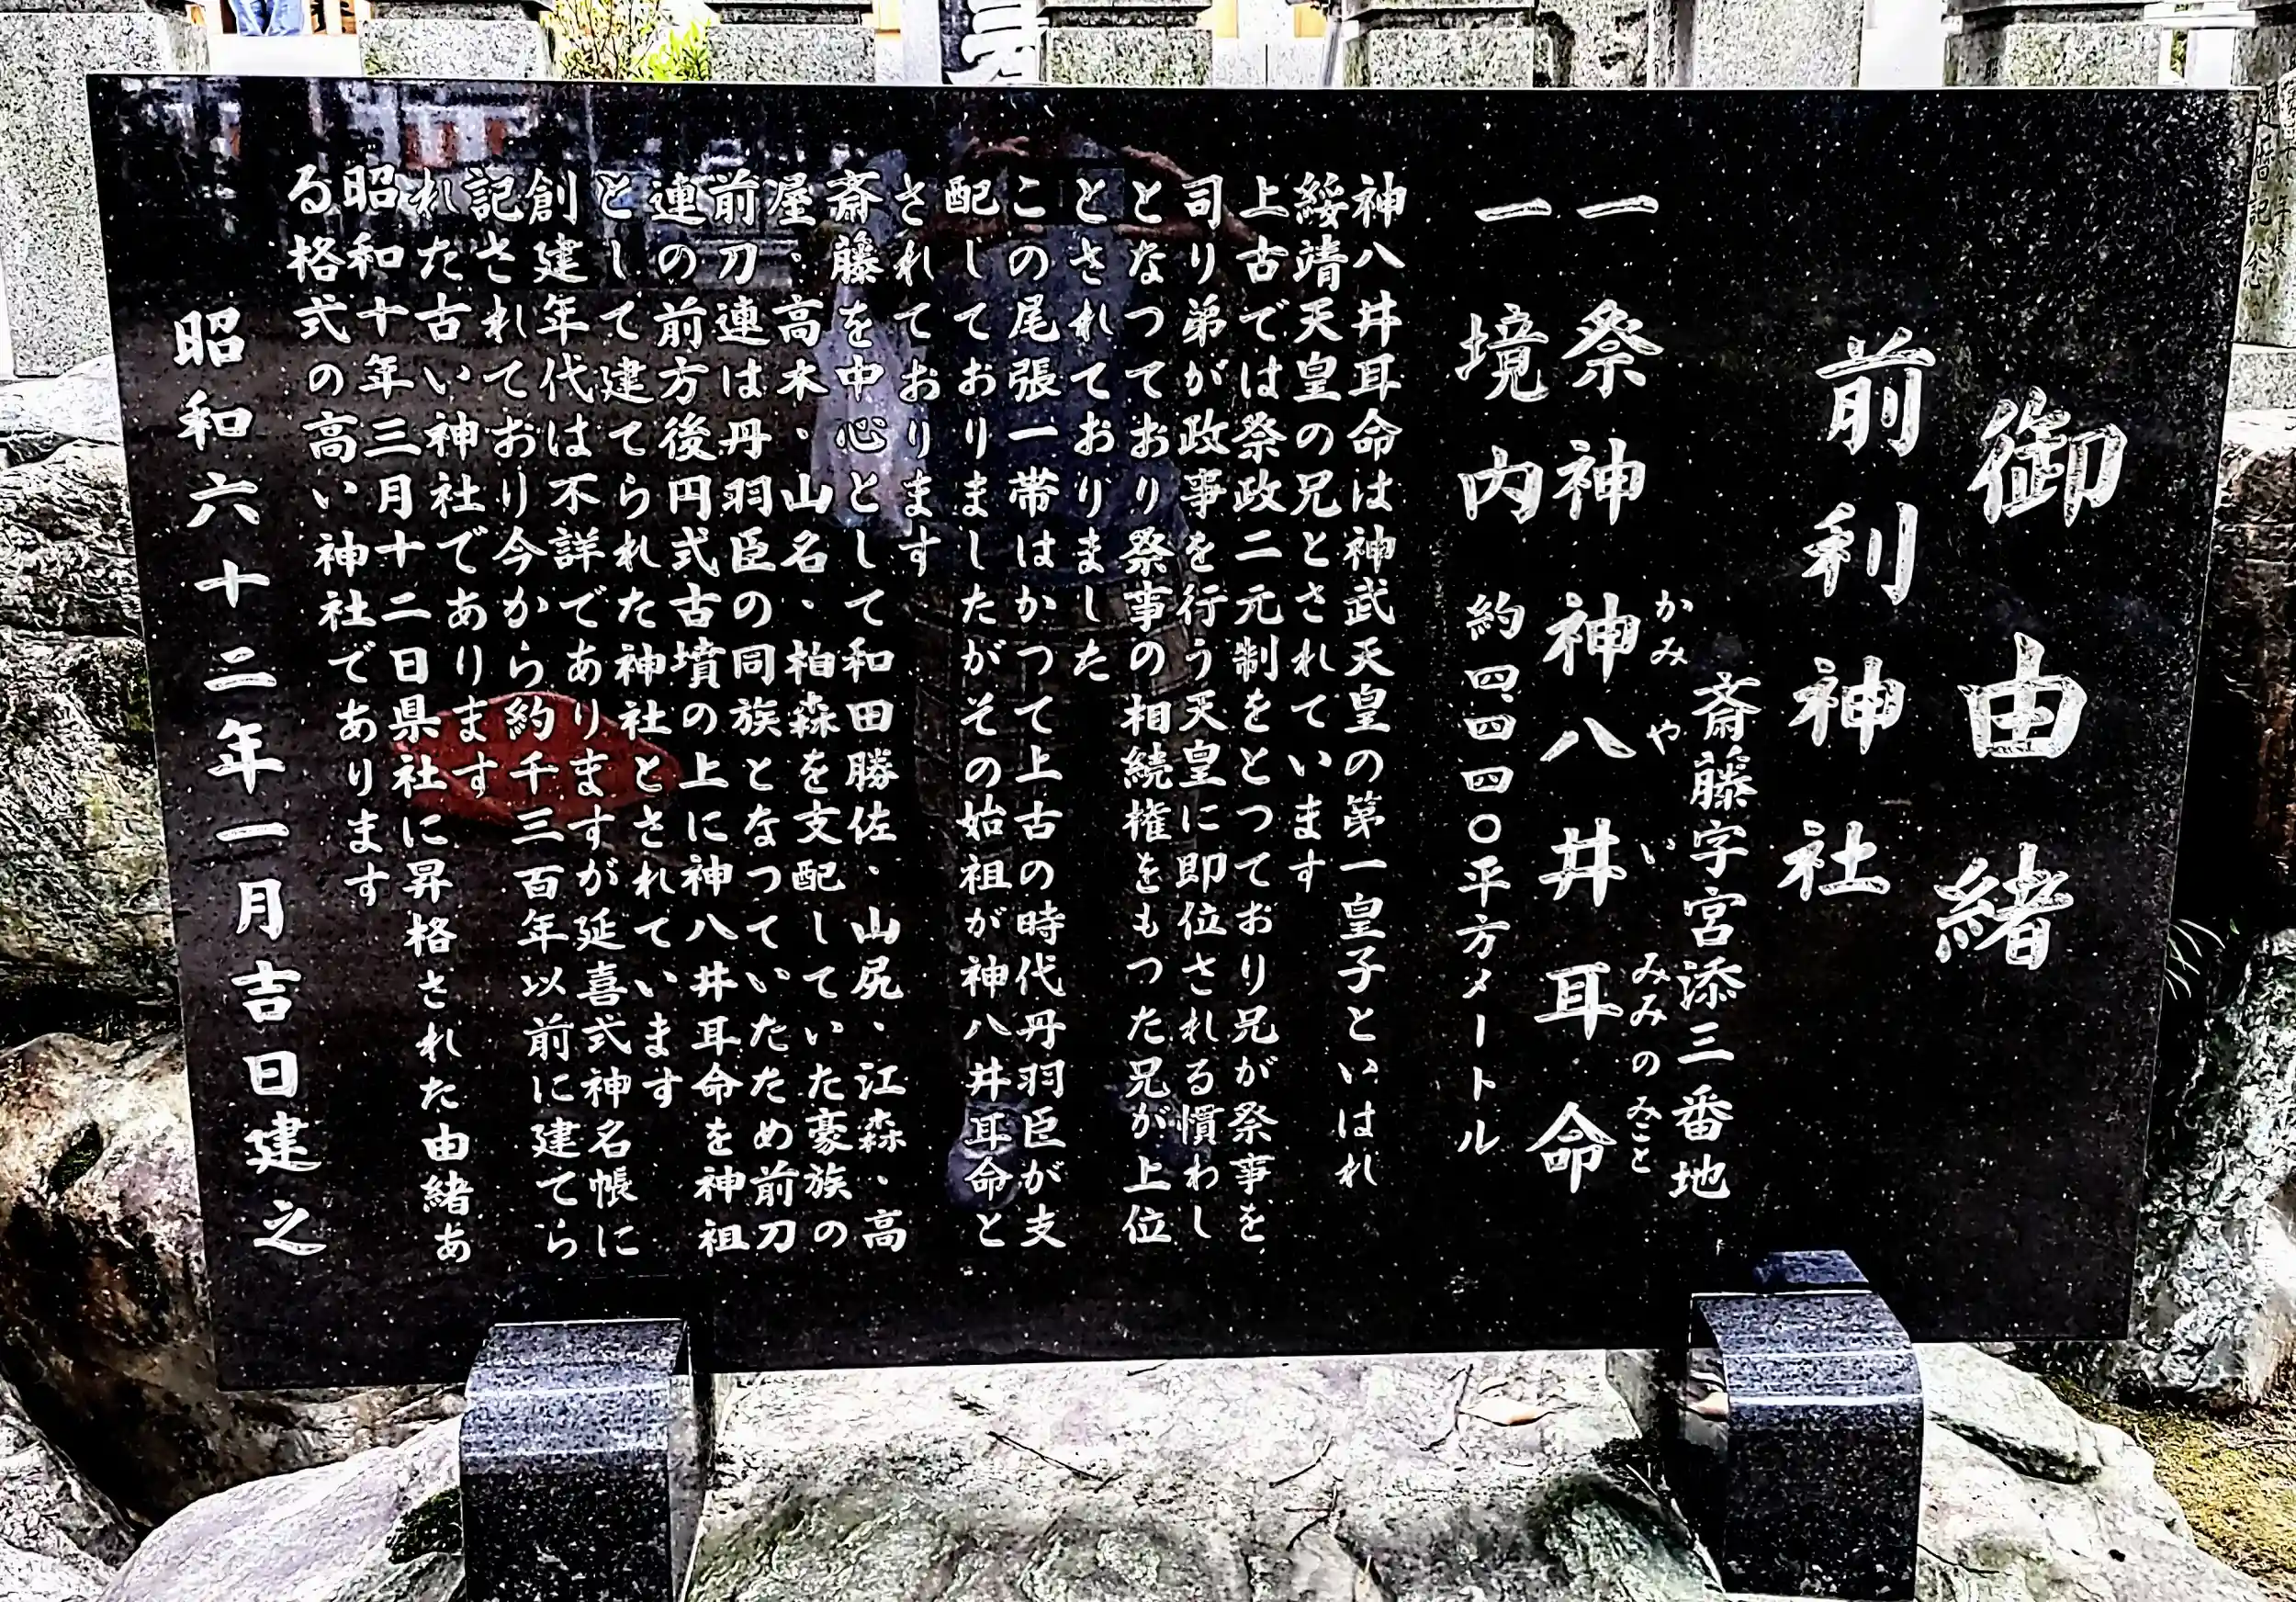 御由緒
前利神社
斎藤字宮添三番地
一 祭神 神八井耳命
かみやいみみのみこと
一 境内 約四、四四〇平方メートル
神八井耳命は神武天皇の第一皇子といはれ
綏靖天皇の兄とされています
上古では祭政二元制をとつており兄が祭事を
司り弟が政事を行う天皇に即位される慣わし
となつており祭事の相続権をもつた兄が上位
とされておりました
この尾張一帯はかつて上古の時代丹羽臣が支
配しておりましたがその始祖が神八井耳命と
されております
斎藤を中心として和田勝佐、山尻、江森、高
屋、高木、山名、柏森を支配していた豪族の
前刀連は丹羽臣の同族となつていたため前刀
連の前方後円式古墳の上に神八井耳命を神祖
として建てられた神社とされています
創建年代は不詳でありますが延喜式神名帳に
記されており今から約千三百年以前に建てら
れた古い神社であります
昭和十年三月十二日県社に昇格された由緒あ
る格式の高い神社であります
昭和六十二年一月吉日建之